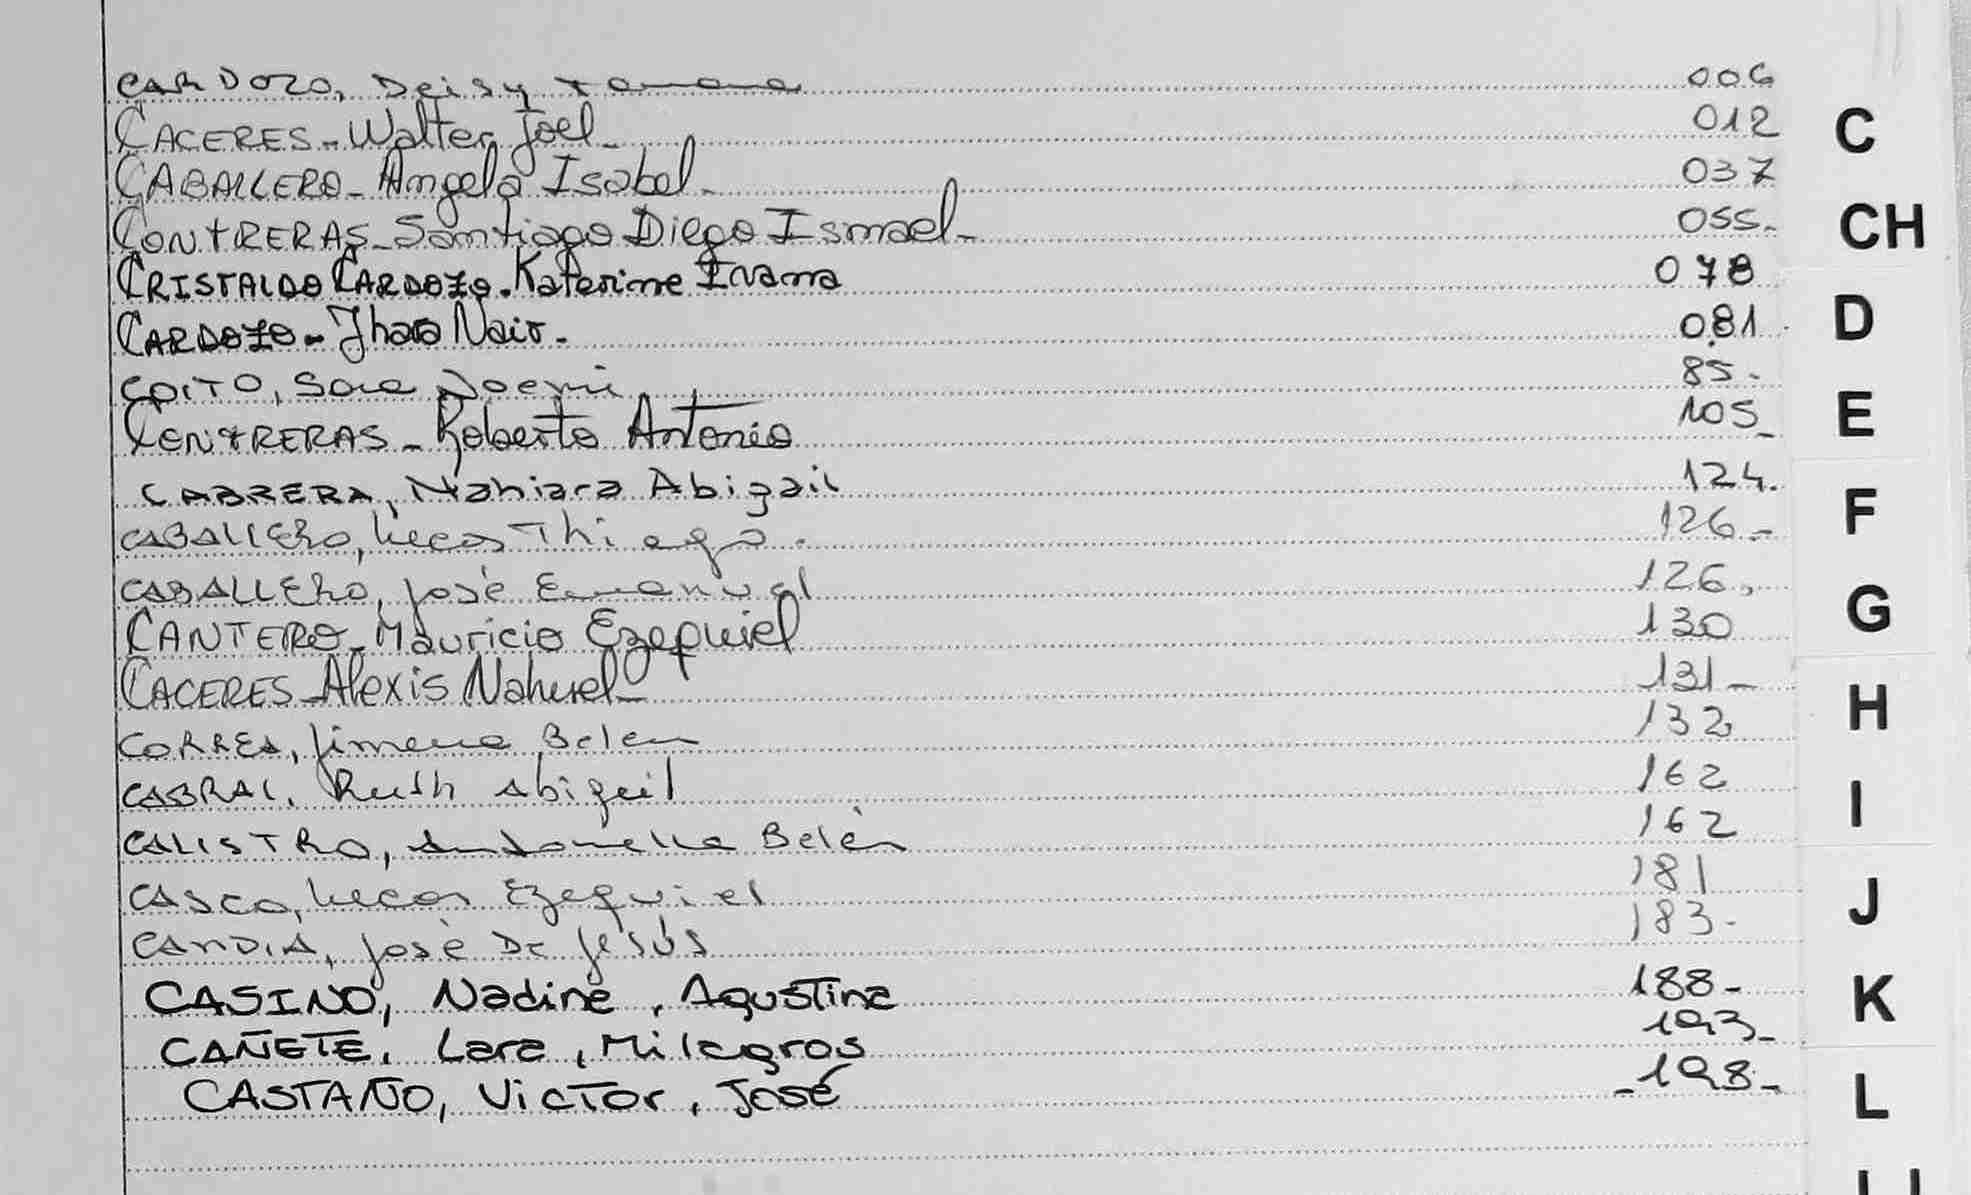 CARDOZO, Deisy 006
CACERES - Walter Joel - 012
CABALLERO - Angela Isabel - 037
CONTRERAS - Santiago Diego Ismael - 055-
CRISTALDO CARDOZO - Katerine Ivana 078
CARDOZO - Jhara Nair - 081
Noemi 85-
CONTRERAS - Roberto Antonio 105-
CABRERA, Nahiara Abigail 124.
CABALLERO, Lucas Thiago. 126-
CABALLERO, José Emanuel 126.
CANTERO - Mauricio Ezequiel 130
CACERES - Alexis Nahuel - 131-
CORREA, Jimena Belen 132
CABRAL, Ruth Abigail 162
CALISTRO, Antonella Belén 162
CASCO, Lucas Ezequiel 181
CANDIA, José De Jesús 183-
CASINO, Nadine, Agustina 188-
CAÑETE, Lara, Milagros 193-
CASTAÑO, Victor, José -198-
C
CH
D
E
F
G
H
I
J
K
L